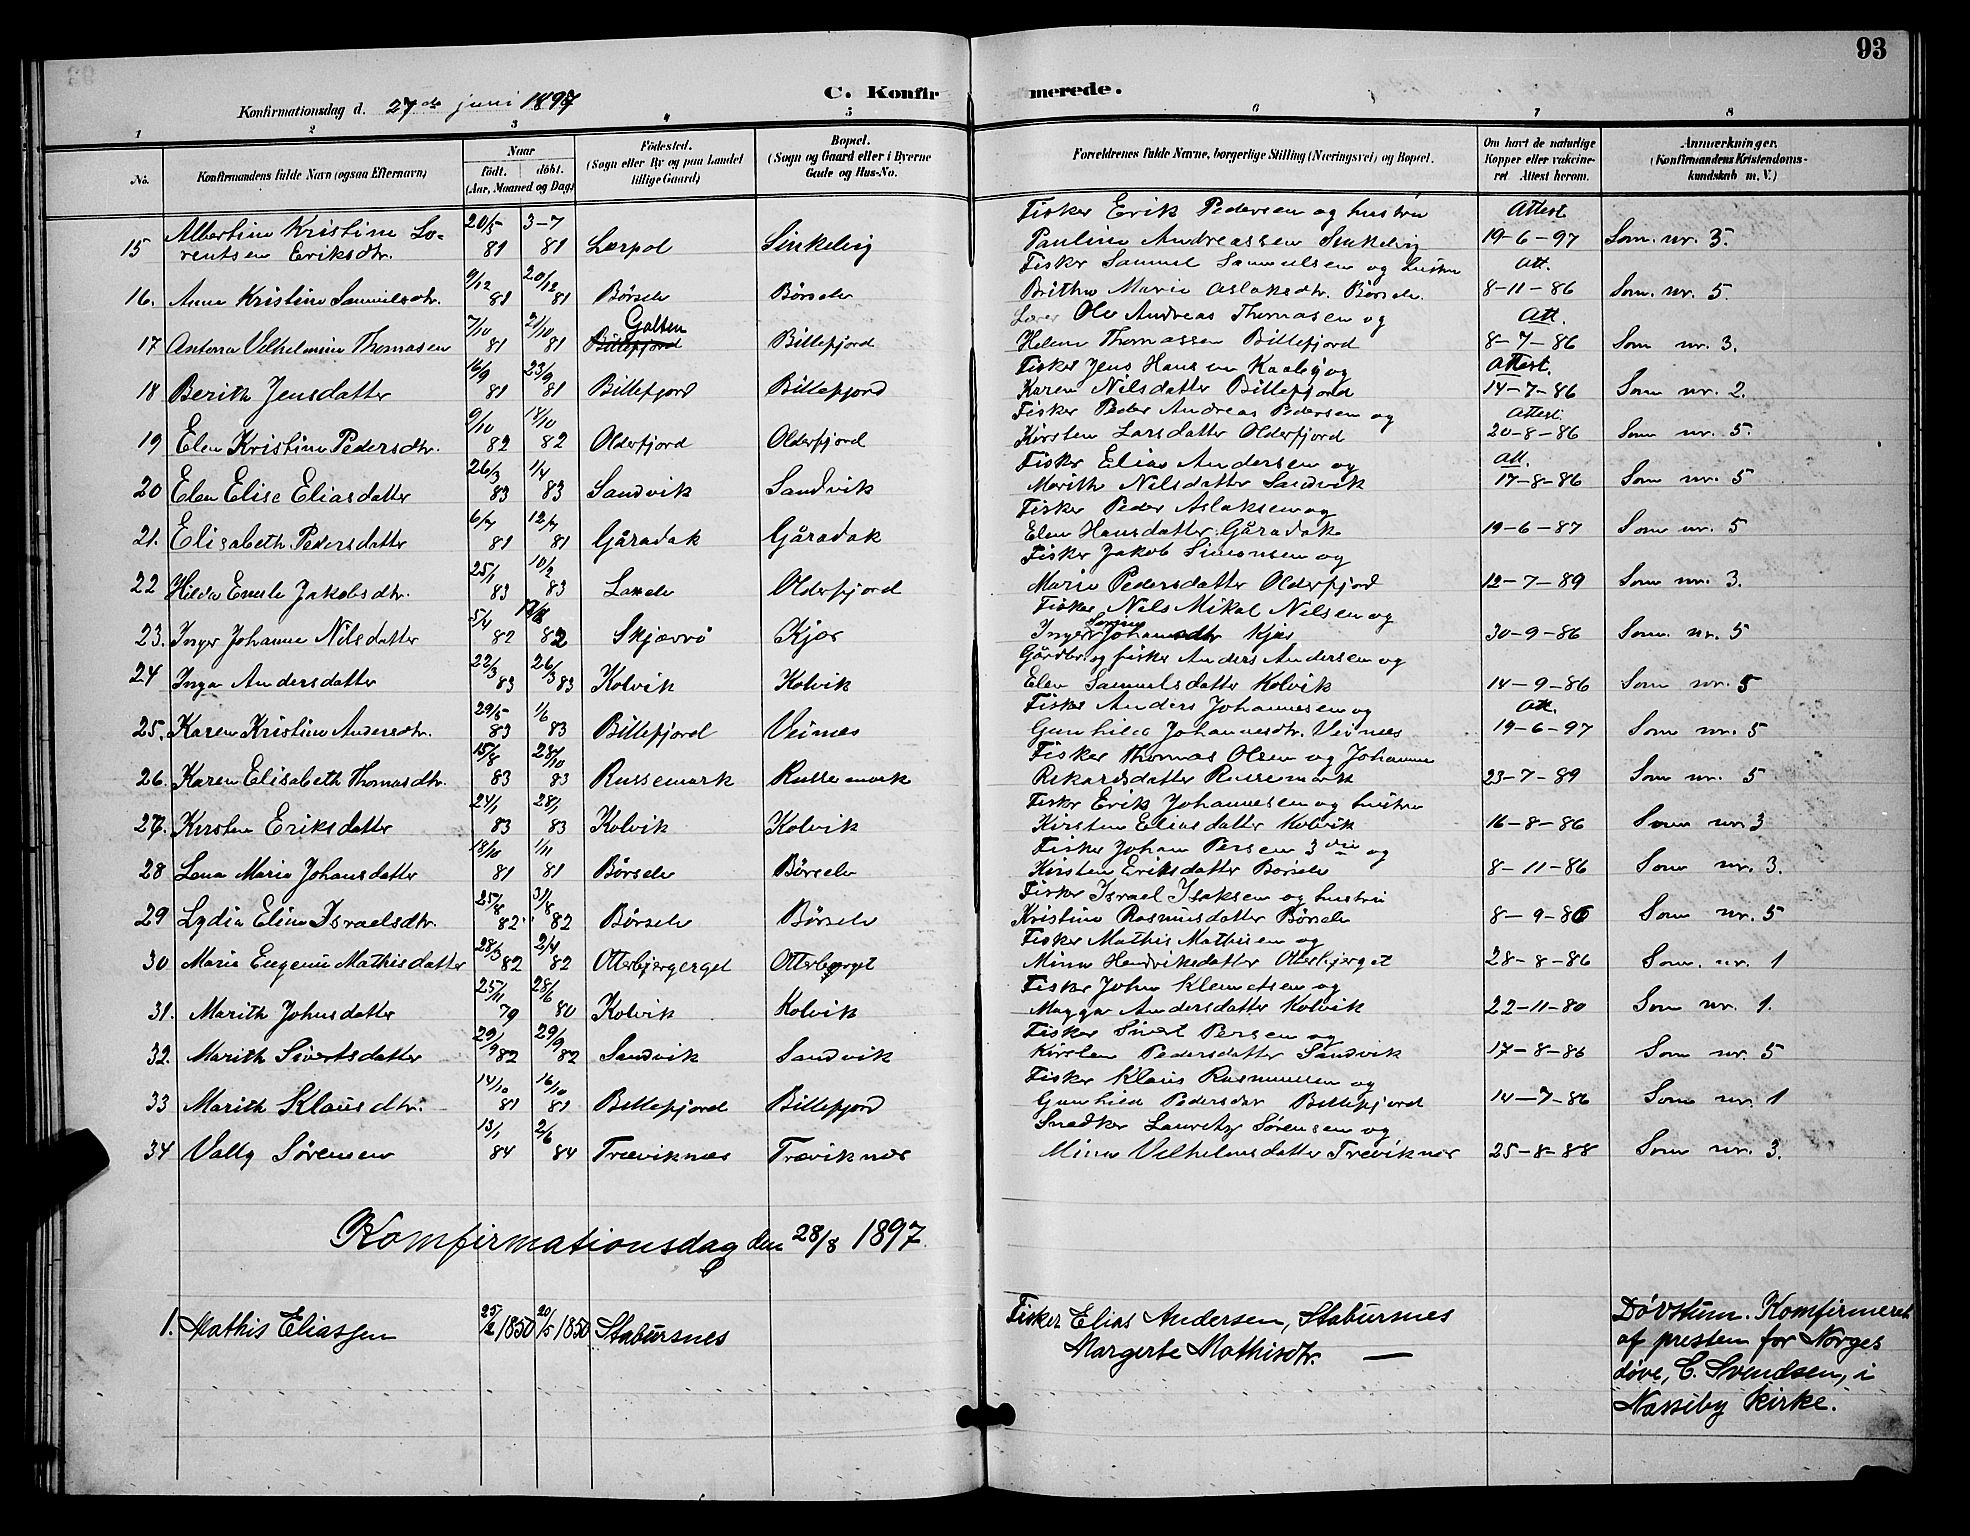 93
Konfirmationsdag d. 27de juni 1897 C. Konfirmerede.
1 2 3 4 5 6 7 8
No. Konfirmandens fulde Navn (ogsaa Efternavn) Naar födt. döbt. (Aar, Maaned og Dag) Födested. (Sogn eller By og paa Landet tillige Gaard) Bopæl. (Sogn og Gaard eller i Byerne Gade og Hus-No. Forældrenes fulde Navne, borgerlige Stilling (Næringsvei) og Bopæl. Om havt de naturlige Kopper eller vakcineret Attest herom. Anmærkninger. (Konfirmandens Kristendomskundskab m. V.)
Albertine Kristine Lo- 20/5 3-7 Fisker Erik Pedersen og hustru Attest
15 rentsen Eriksdtr. 81 81 Lerpol Sinkelvig Pauline Andreassen Sinkelvig 19-6-97 Som nr. 5.
9/12 20/12 Fisker Samuel Samuelsen og hustru Att.
16. Anne Kristine Samuelsdtr. 81 81 Börselv Börselv Brithe Marie Aslaksdtr. Börselv. 8-11-86 Som nr. 5.
7/10 21/10 Galten Lærer Ole Andreas Thomasen og Att.
17 Antona Vilhelmine Thomasen 81 81 Billefjord Billefjord Helene Thomassen Billefjord 8-7-86 Som nr. 3.
16/9 23/9 Fisker Jens Hansen Kaaby og Attest.
18 Berith Jensdatter 81 81 Billefjord Billefjord Karen Nilsdatter Billefjord 14-7-86 Som nr. 2.
9/10 14/10 Fisker Peder Andreas Pedersen og Attest.
19 Elen Kristine Pedersdtr. 82 82 Olderfjord Olderfjord Kirsten Larsdatter Olderfjord 20-8-86 Som nr. 5.
26/3 1/4 Fisker Elias Andersen og Att.
20 Elen Elise Eliasdatter 83 83 Sandvik Sandvik Marith Nilsdatter Sandvik 17-8-86 Som nr. 5
6/7 12/7 Fisker Peder Aslaksen og
21. Elisabeth Pedersdatter 81 81 Gåradak Gåradak Elen Hansdatter Gåradak 19-6-87 Som nr. 5
25/1 10/2 Fisker Jakob Simonsen og
22 Hilda Emele Jakobsdtr. 83 83 Olderfjord Marie Pedersdatter Olderfjord 12-7-89 Som nr. 3.
5/4 Fisker Nils Mikal Nilsen og
23. Inger Johanne Nilsdatter 82 82 Skjærvö Kjæs Inger Johansdtr Kjæs 30-9-86 Som nr. 5
22/3 26/3 Gårdbr og fisker Anders Andersen og
24 Inga Andersdatter 83 83 Kolvik Kolvik Elen Samuelsdatter Kolvik 14-9-86 Som nr. 5
29/5 1/6 Fisker Anders Johannesen og Att.
25. Karen Kristine Andersdtr. 83 83 Billefjord Veines Gunhild Johannesdtr. Veines 19-6-97 Som nr. 5
15/8 28/10 Fisker Thomas Olsen og Johanne
26. Karen Elisabeth Thomasdtr. 83 83 Russemark Russemark Rikardsdatter Russemark 23-7-89 Som nr. 5
24/1 28/1 Fisker Erik Johannesen og hustru
27. Kirsten Eriksdatter 83 83 Kolvik Kolvik Kirsten Eliasdatter Kolvik 16-8-86 Som nr. 3
18/10 1/11 Fisker Johan Persen 3die og
28 Lena Marie Johansdatter 81 81 Börselv Börselv Kirsten Eriksdatter Börselv 8-11-86 Som nr. 3.
25/8 31/8 Fisker Israel Isaksen og hustru
29 Lydia Eline Israelsdtr. 82 82 Börselv Börselv Kristine Rasmusdatter Börselv 8-9-86 Som nr. 5
28/3 2/4 Fisker Mathis Mathisen og
30 Marie Eugenie Mathisdatter 82 82 Otterbjergerget Otterbjerget Mina Henriksdatter Otterbjerget 28-8-86 Som nr. 1
25/11 28/6 Fisker John Klemetsen og
31. Marith Johnsdatter 79 80 Kolvik Kolvik Magga Andersdatter Kolvik 22-11-80 Som nr. 1.
29/9 29/9 Fisker Sivert Persen og
32. Marith Sivertsdatter 82 82 Sandvik Sandvik Kirsten Pedersdatter Sandvik 17-8-86 Som nr. 5
14/10 16/10 Fisker Klaus Rasmussen og
33 Marith Klausdtr. 81 81 Billefjord Billefjord Gunhild Pedersdtr Billefjord 14-7-86 Som nr. 1
13/1 2/6 Snedker Lauritz Sörensen og
34 Vally Sörensen 84 84 Træviknes Træviknes Mina Vilhelmsdatter Treviknes 25-8-88 Som nr. 3.
Komfirmationsdag den 28/8 1897.
1. Mathis Eliassen 1850 20/5 1850 Stabursnes Fisker Elias Andersen, Stabursnes Døvstum. Komfirmeret
Margerte Mathisdtr. — af presten for Norges
døve, C. Svendsen, i
Nasseby kirke.